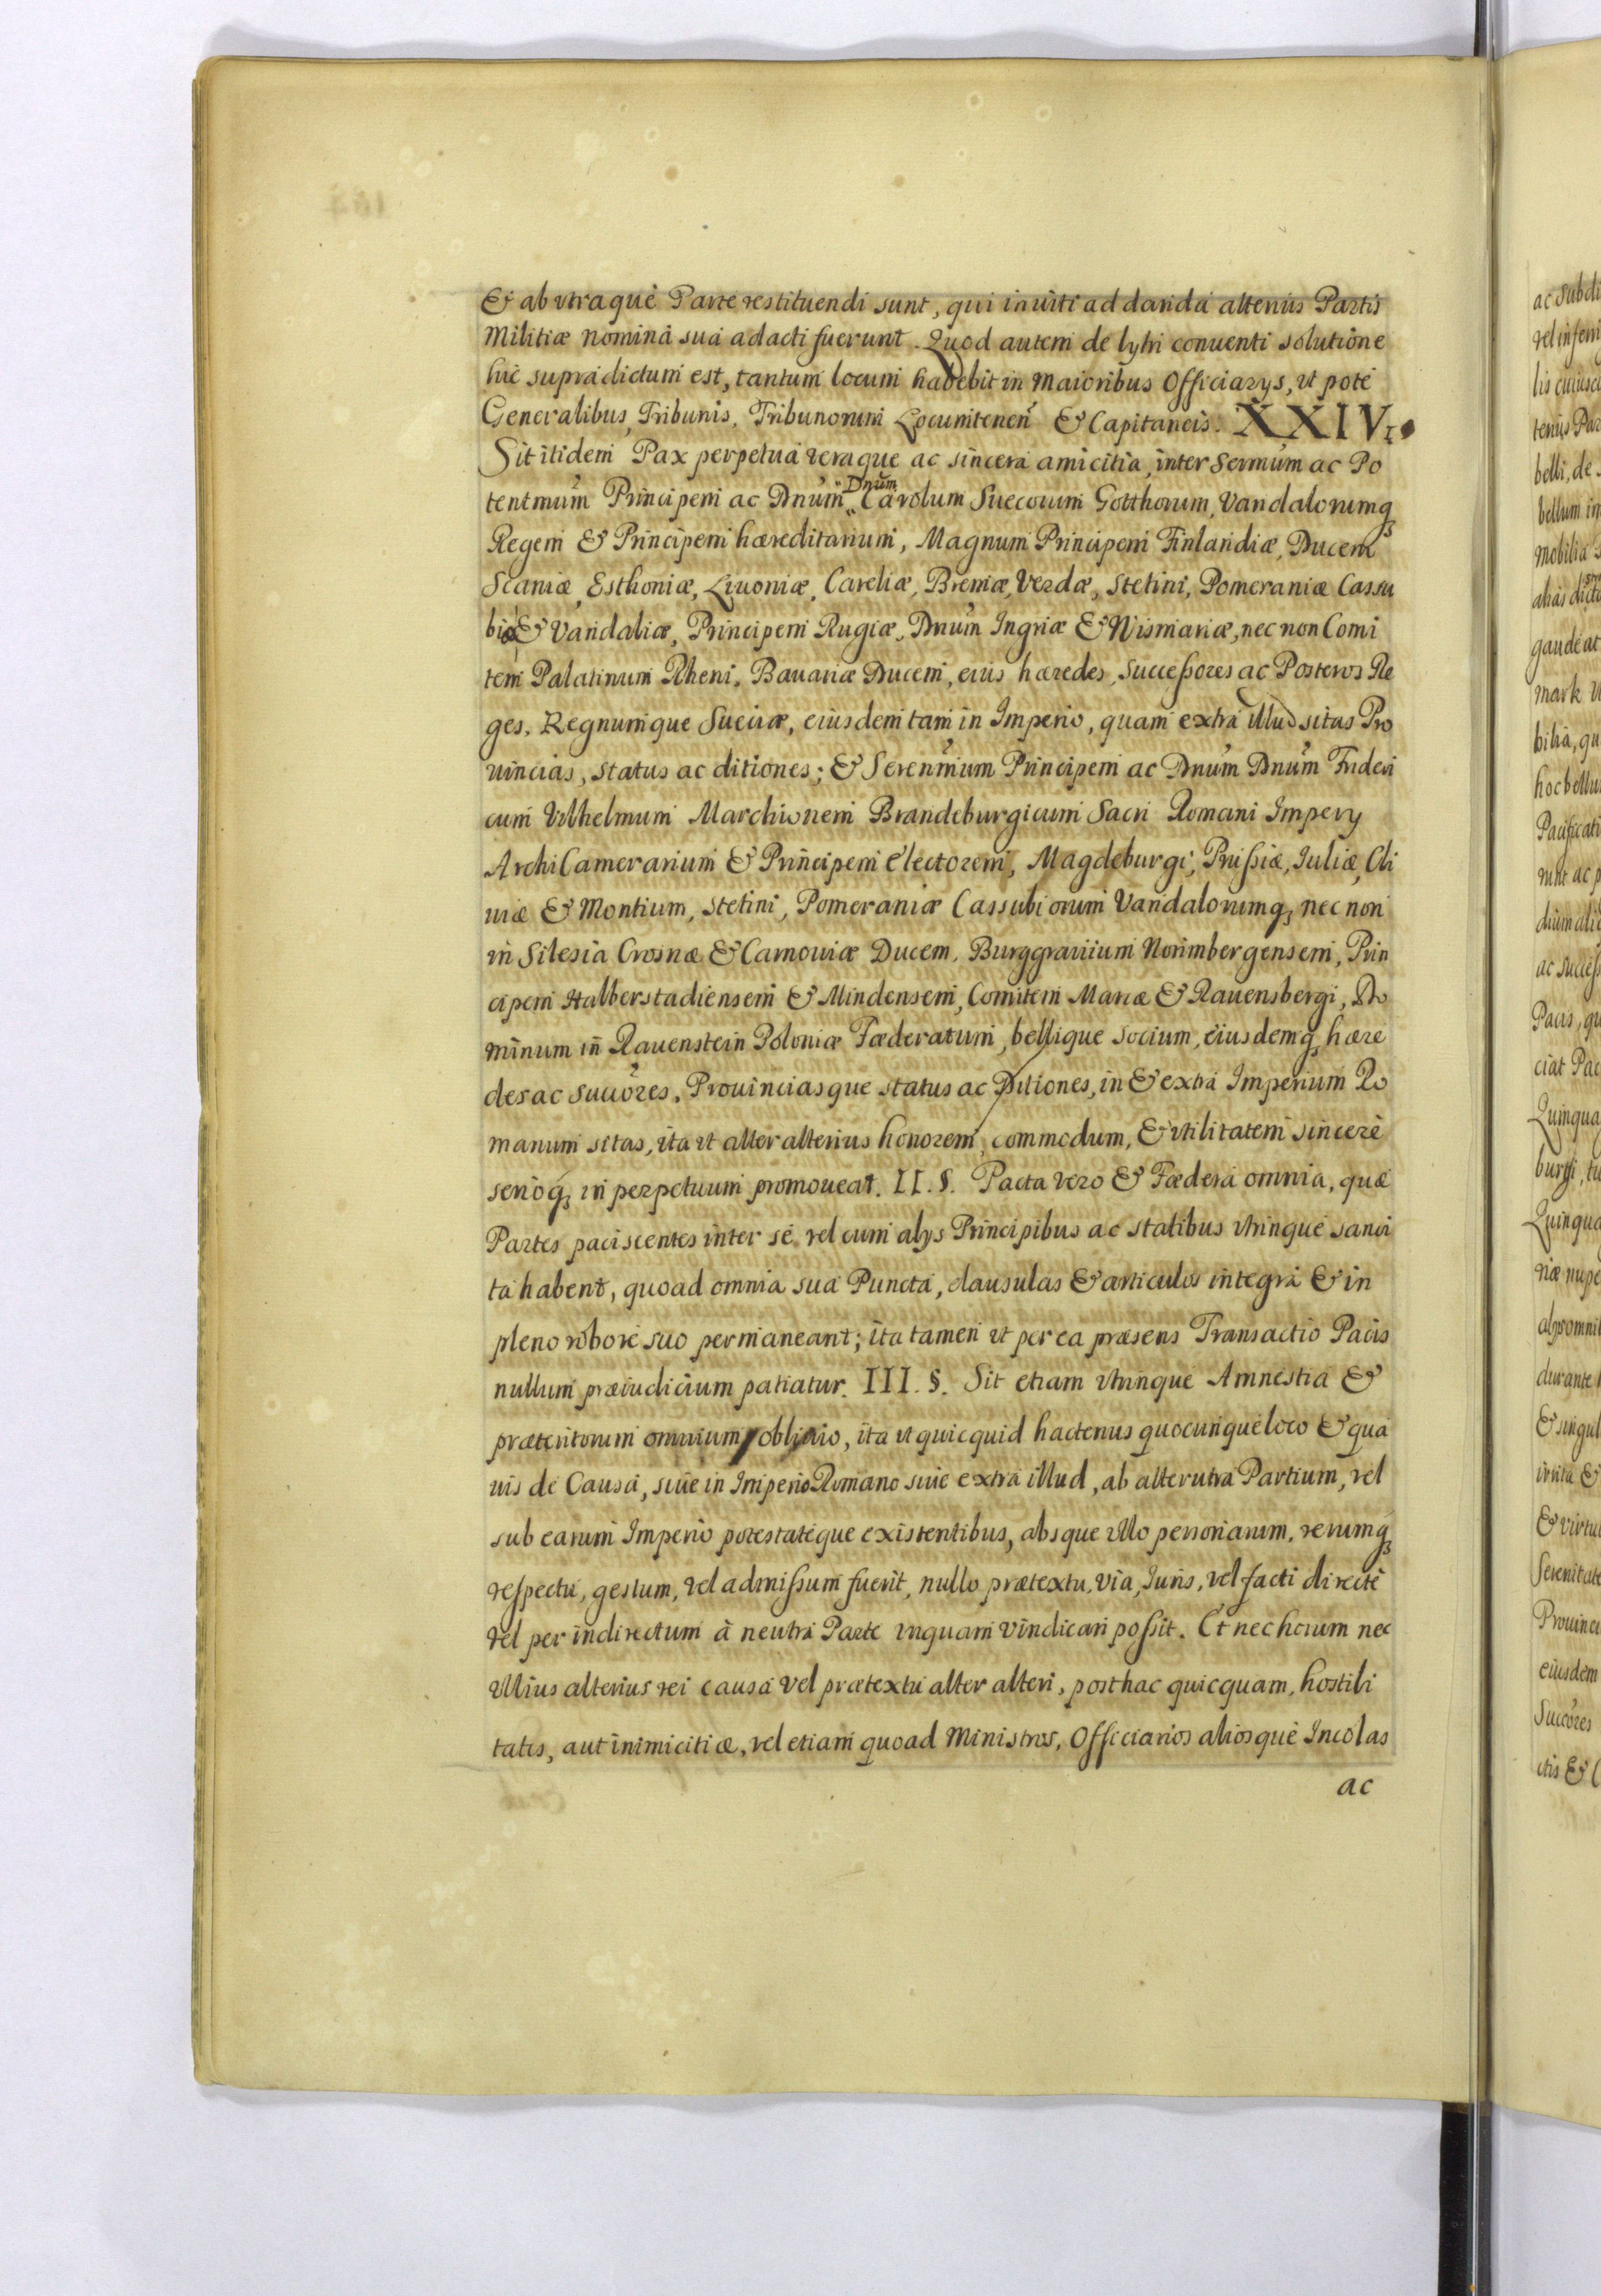 Et ab vtraque Parte restituendi sunt, qui inuiti ad danda alterius Partis
Militiæ nomina sua adacti fuerunt. Quod autem de lytri conuenti solutione
hic supradictum est, tantum locum habebit in Maioribus Officiarys, vt pote
Generalibus, Tribunis, Tribunorum Locumtenen̄ & Capitaneis. XXIV.
Sit itidem Pax perpetua veraque ac sincera amicitia, inter Sermum ac Po
tentmum Principem ac Dnum Dnum Carolum Suecorum Gotthorum, Vandalorumq
Regem & Principem hæreditarium, Magnum Principem Finlandiæ, Ducem
Scaniæ, Esthoniæ, Liuoniæ, Careliæ, Bremæ, Verdæ, Stetini, Pomeraniæ Cassu
biæ & Vandaliæ, Principem Rugiæ, Dnum Ingriæ & Wismariæ, nec non Comi
tem Palatinum Rheni, Bauariæ Ducem, eius hæredes, Successores ac Posteros Re
ges, Regnumque Sueciæ, eiusdem tam in Imperio, quam extra illud sitas Pro
uincias, status ac ditiones; & Serenmum Principem ac Dnum Dnum Frideri
cum Vilhelmum Marchionem Brandeburgicum Sacri Romani Impery
ArchiCamerarium & Principem Electorem, Magdeburgi, Prussiæ, Iuliæ, Cli
uiæ & Montium, Stetini, Pomeraniæ Cassubiorum Vandalorumq, nec non
in Silesia Crosnæ & Carnouiæ Ducem, Burggrauium Norimbergensem, Prin
cipem Halberstadiensem & Mindensem, Comitem Marcæ & Rauensbergi, Do
minum in Rauenstein Poloniæ Fœderatum, bellique socium, eiusdemq hære
des ac Succores, Prouinciasque status ac Ditiones, in & extra Imperium Ro
manum sitas, ita vt alter alterius honorem, commodum, & vtilitatem sincere
serioq in perpetuum promoueat. II. §. Pacta vero & Fœdera omnia, quæ
Partes paciscentes inter se vel cum alys Principibus ac statibus vtrinque sanci
ta habent, quoad omnia sua Puncta, clausulas & articulos integra & in
pleno robore suo permaneant; ita tamen vt per ea præsens Transactio Pacis
nullum præiudicium patiatur. III. §. Sit etiam vtrinque Amnestia &
præteritorum omnium obliuio, ita vt quicquid hactenus quocunque loco & qua
uis de Causa, siue in Imperio Romano siue extra illud, ab alterutra Partium, vel
sub earum Imperio potestateque existentibus, absque vllo personarum, rerumq
respectu, gestum, vel admissum fuerit, nullo prætextu, via, Iuris, vel facti directe
vel per indirectum à neutra Parte vnquam vindicari possit. Et nec horum nec
vllius alterius rei causa vel prætextu alter alteri, posthac quicquam, hostili
tatis, aut inimicitiæ, vel etiam quoad Ministros, Officiarios aliosque Incolas
ac